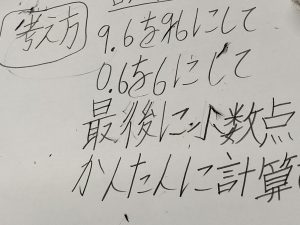 考え方
9.6を96にして
0.6を6にして
最後に小数点
かんたんに計算